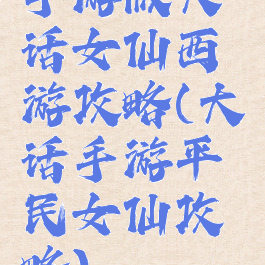 手游版大
话女仙西
游攻略(大
话手游平
民女仙攻
略)